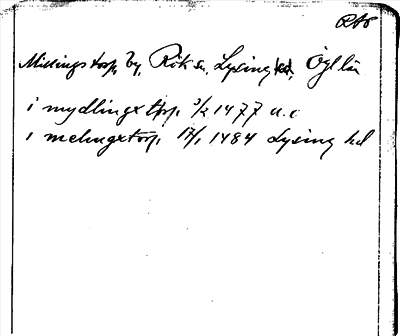 RAÖ
Millingstorp, by, Rök sn, Lysings hd, Ögl län
i mydlingxtorp, 3/2 1477 u.c
i melingxtorp, 17/1 1484 Lysing hd